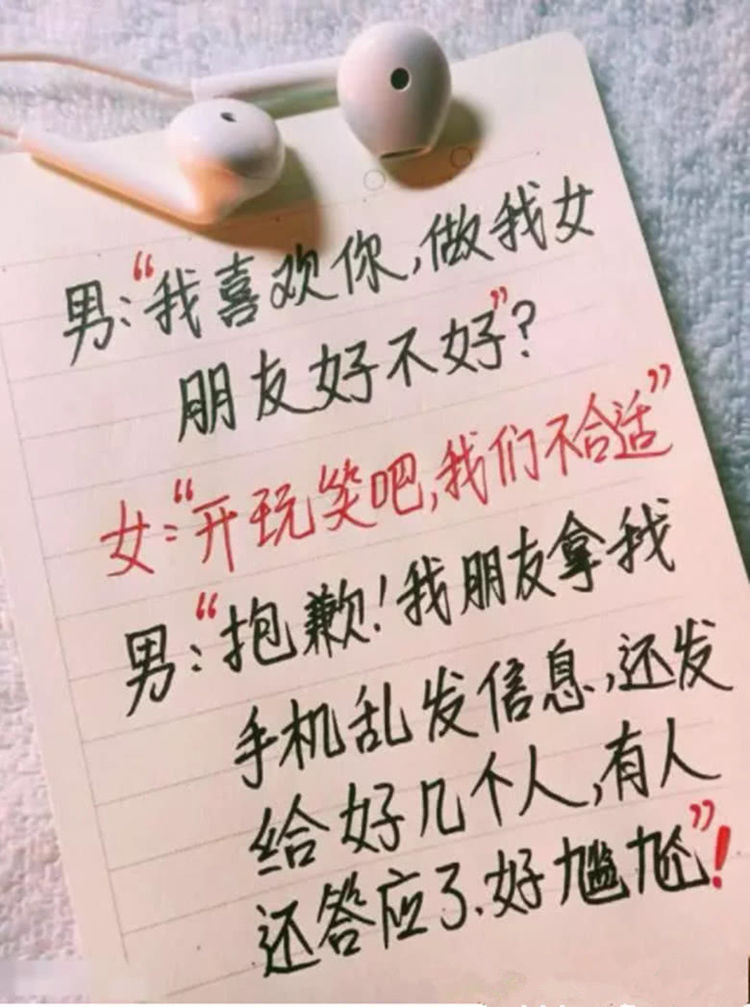 男:“我喜欢你,做我女
朋友好不好”?
女:“开玩笑吧,我们不合适”
男:“抱歉!我朋友拿我
手机乱发信息,还发
给好几个人,有人
还答应了.好尴尬”!